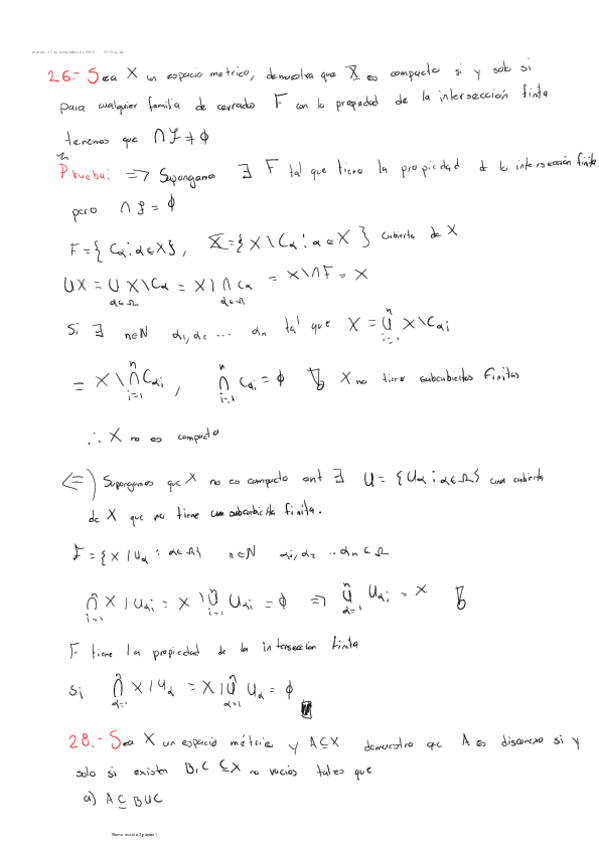 26.- Sea X un espacio metrico, demuestra que X es compacto si y solo si
para cualquier familia de cerrado F con la propiedad de la intersección finita
tenemos que ∩ F ≠ ϕ
Prueba: => Supongamos ∃ F tal que tiene la propiedad de la intersección finita
pero ∩ F = ϕ
F = { Cα : α ∈ X }, X = { X \ Cα : α ∈ X } cubierta de X
UX = U X \ Cα = X \ ∩ Cα = X \ ∩F = X
α∈Ω α∈Ω
Si ∃ n∈N α1, α2 ... αn tal que X = U X \ Cαi
n
i=1
= X \ ∩ Cαi , ∩ Cαi = ϕ X no tiene subcubiertas finitas
n n
i=1 i=1
∴ X no es compacto
<=) Supongamos que X no es compacto ent ∃ U = { Uα : α ∈ Ω } una cubierta
de X que no tiene subcubierta finita.
F = { X \ Uα : α∈Ω } n∈N α1, α2 ... αn ∈ Ω
∩ X \ Uαi = X \ U Uαi = ϕ => U Uαi = X
n n n
i=1 i=1 α=1
F tiene la propiedad de la intersección finita
si ∩ X \ Uα = X \ U Uα = ϕ
n n
α=1 α=1
28.- Sea X un espacio métrico y A⊆X demuestra que A es disconexo si y
solo si existen B, C ⊆ X no vacios tales que
a) A ⊆ B U C